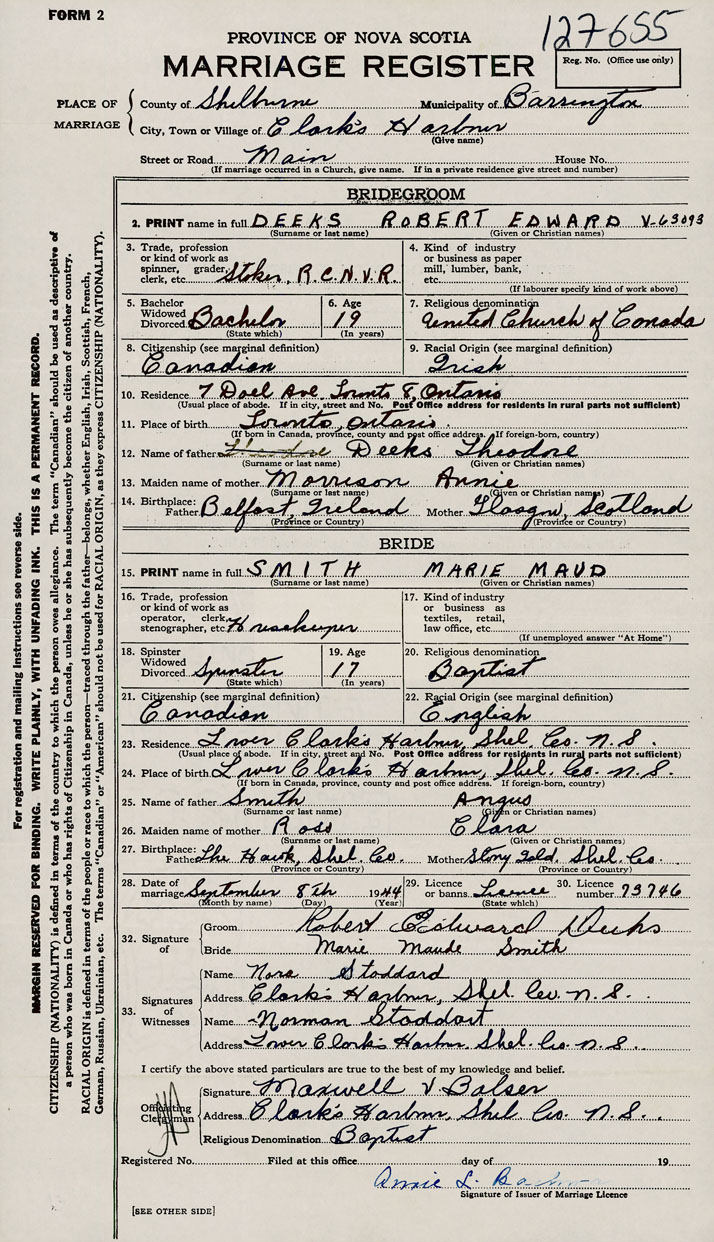 FORM 2
127655
PROVINCE OF NOVA SCOTIA
MARRIAGE REGISTER
Reg. No. (Office use only)
PLACE OF MARRIAGE
County of Shelburne Municipality of Barrington
City, Town or Village of Clark's Harbour
(Give name)
Street or Road Main House No.
(If marriage occurred in a Church, give name. If in a private residence give street and number)
BRIDEGROOM
2. PRINT name in full DEEKS ROBERT EDWARD V-63093
(Surname or last name) (Given or Christian names)
3. Trade, profession or kind of work as spinner, grader, clerk, etc. Stoker, R.C.N.V.R.
4. Kind of industry or business as paper mill, lumber, bank, etc.
(If labourer specify kind of work above)
5. Bachelor Widowed Divorced Bachelor (State which)
6. Age 19 (In years)
7. Religious denomination United Church of Canada
8. Citizenship (see marginal definition) Canadian
9. Racial Origin (see marginal definition) Irish
10. Residence 7 Doel Ave. Toronto 8, Ontario
(Usual place of abode. If in city, street and No. Post Office address for residents in rural parts not sufficient)
11. Place of birth Toronto, Ontario.
(If born in Canada, province, county and post office address. If foreign-born, country)
12. Name of father Deeks Theodore
(Surname or last name) (Given or Christian names)
13. Maiden name of mother Morrison Annie
(Surname or last name) (Given or Christian names)
14. Birthplace: Father Belfast, Ireland Mother Glasgow, Scotland
(Province or Country) (Province or Country)
BRIDE
15. PRINT name in full SMITH MARIE MAUD
(Surname or last name) (Given or Christian names)
16. Trade, profession or kind of work as operator, clerk, stenographer, etc. Housekeeper
17. Kind of industry or business as textiles, retail, law office, etc.
(If unemployed answer "At Home")
18. Spinster Widowed Divorced Spinster (State which)
19. Age 17 (In years)
20. Religious denomination Baptist
21. Citizenship (see marginal definition) Canadian
22. Racial Origin (see marginal definition) English
23. Residence Lower Clark's Harbour, Shel. Co. N.S.
(Usual place of abode. If in city, street and No. Post Office address for residents in rural parts not sufficient)
24. Place of birth Lower Clark's Harbour, Shel. Co. N.S.
(If born in Canada, province, county and post office address. If foreign-born, country)
25. Name of father Smith Angus
(Surname or last name) (Given or Christian names)
26. Maiden name of mother Ross Clara
(Surname or last name) (Given or Christian names)
27. Birthplace: Father The Hawk, Shel. Co. Mother Stony Isld, Shel. Co.
(Province or Country) (Province or Country)
28. Date of marriage September 8th 1944
(Month by name) (Day) (Year)
29. Licence or banns. Licence (State which)
30. Licence number 73746
32. Signature of
Groom Robert Edward Deeks
Bride Marie Maude Smith
33. Signatures of Witnesses
Name Nora Stoddard
Address Clark's Harbour, Shel. Co. N.S.
Name Norman Stoddart
Address Lower Clark's Harbour Shel. Co. N.S.
I certify the above stated particulars are true to the best of my knowledge and belief.
Officiating Clergyman
Signature Maxwell V Balser
Address Clark's Harbour, Shel. Co. N.S.
Religious Denomination Baptist
Registered No. Filed at this office day of 19
Annie L.
Signature of Issuer of Marriage Licence
[SEE OTHER SIDE]
For registration and mailing instructions see reverse side.
MARGIN RESERVED FOR BINDING. WRITE PLAINLY, WITH UNFADING INK. THIS IS A PERMANENT RECORD.
CITIZENSHIP (NATIONALITY) is defined in terms of the country to which the person owes allegiance. The term "Canadian" should be used as descriptive of
a person who was born in Canada or who has rights of Citizenship in Canada, unless he or she has subsequently become the citizen of another country.
RACIAL ORIGIN is defined in terms of the people or race to which the person—traced through the father—belongs, whether English, Irish, Scottish, French,
German, Russian, Ukrainian, etc. The terms "Canadian" or "American" should not be used for RACIAL ORIGIN, as they express CITIZENSHIP (NATIONALITY).